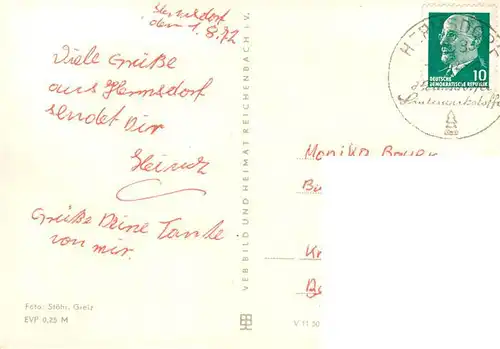 Hermsdorf
den 1.8.72
Viele Grüße
aus Hermsdorf
sendet Dir
Heinz
Grüße Deine Tante
von mir.
Foto: Stöhr, Greiz
EVP 0,25 M
VEB BILD UND HEIMAT REICHENBACH I. V.
V 11 50
10
DEUTSCHE
DEMOKRATISCHE REPUBLIK
Monika